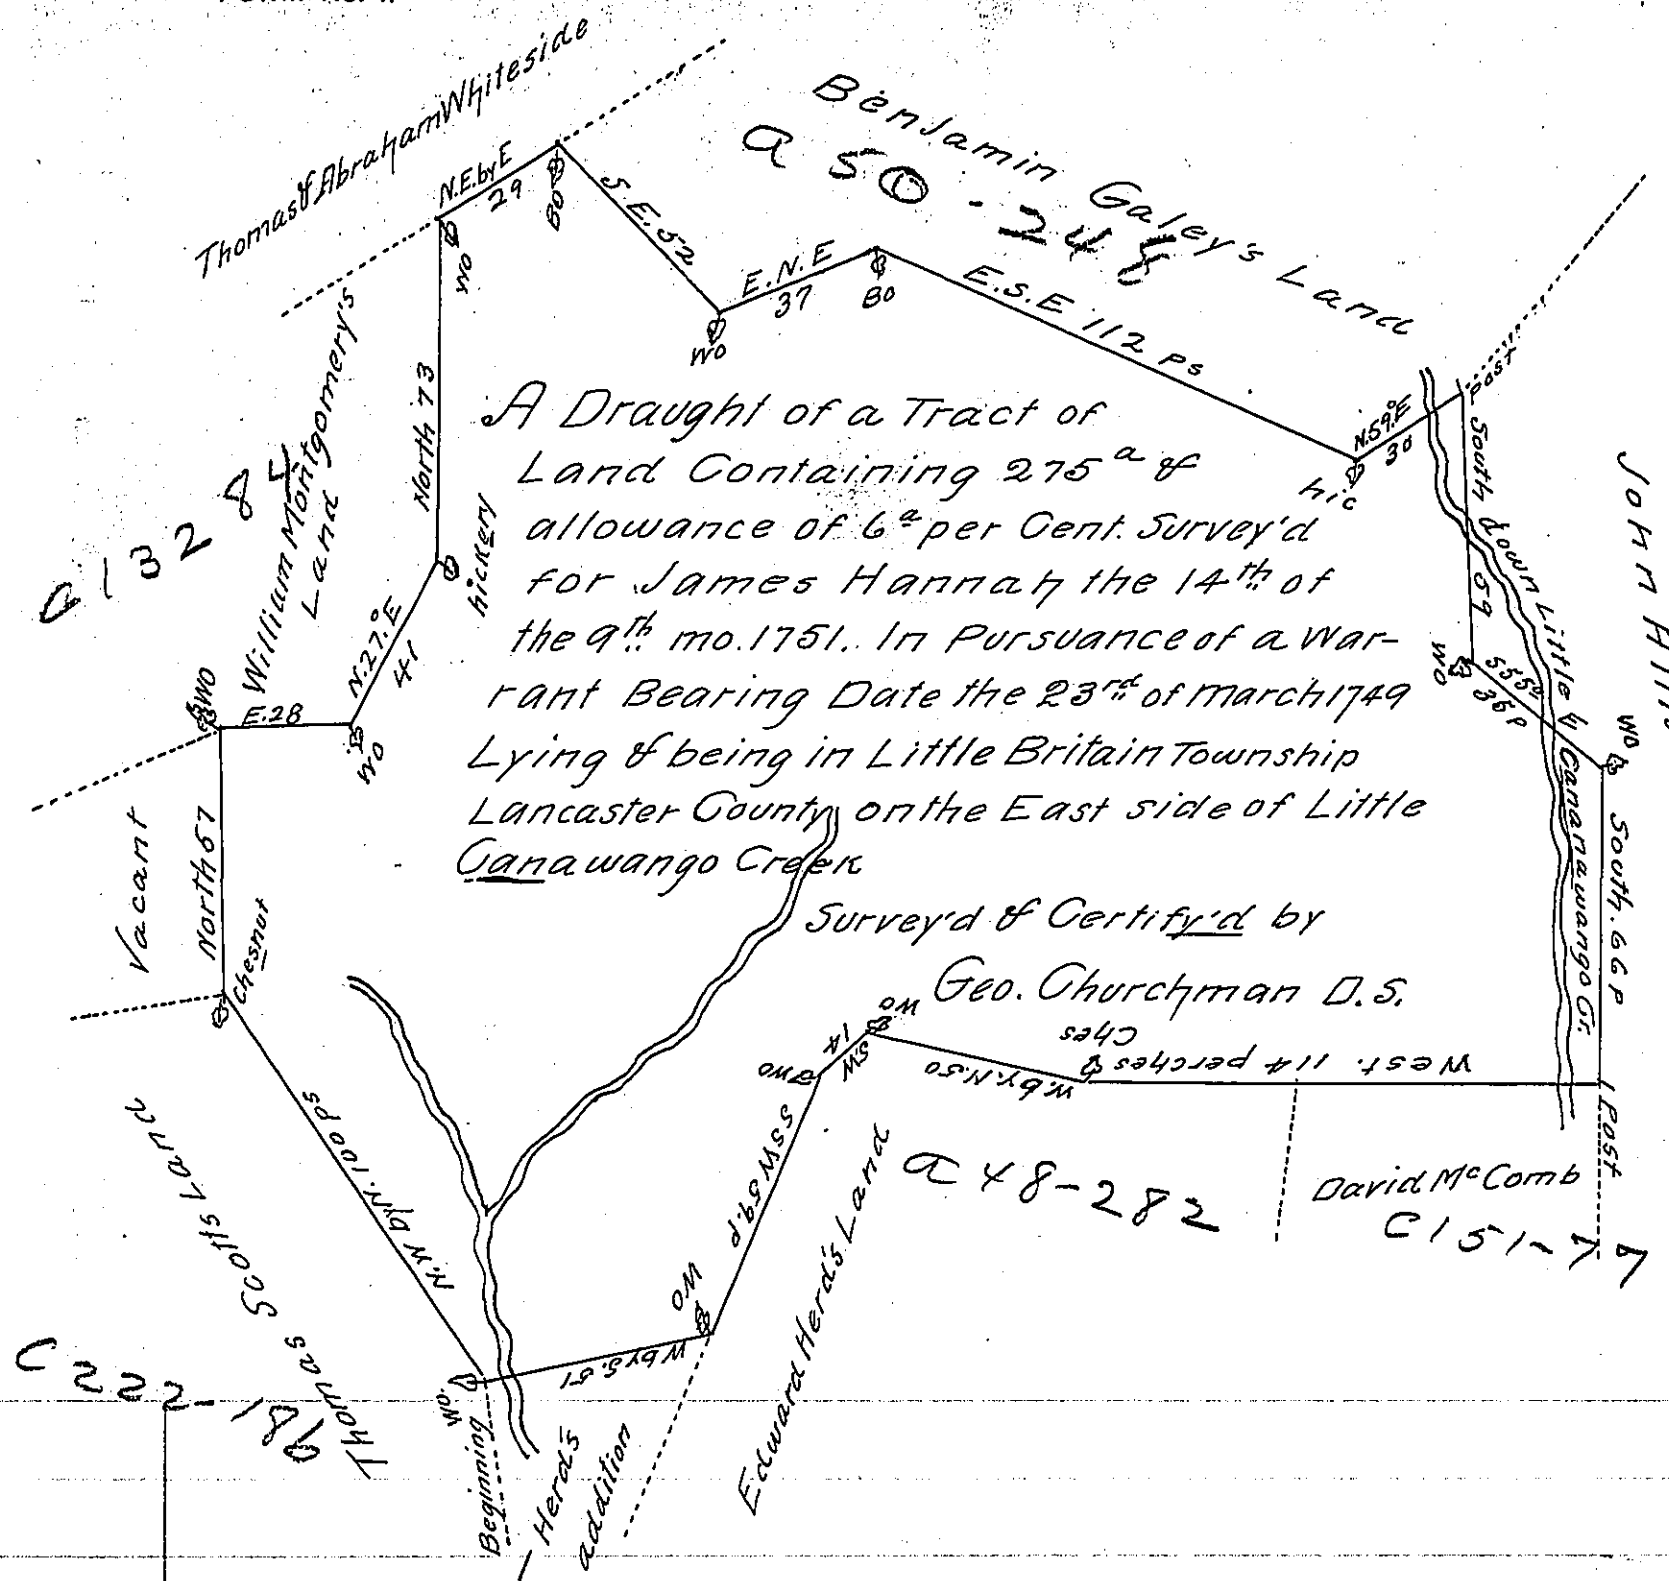 Thomas & Abraham Whiteside
Benjamin Galey's Land
a 50-248
N.E. by E
29
BO
WO
S.E. 52
WO
E.N.E
37
BO
E.S.E 112 ps
hic
N.59°E
30
Post
South down Little Canawango Cr.
59
WO
S55°
36P
WO
South. 66 P
Post
John
William Montgomery's
Land
North 73
hickery
N.27.°E
41
WO
E.28
WO
Vacant
North 67
Chesnut
A Draught of a Tract of
Land Containing 275ᵃ &
allowance of 6ᵃ per Cent. Survey'd
for James Hannah the 14th of
the 9th mo. 1751. In Pursuance of a War-
rant Bearing Date the 23rd of march 1749
Lying & being in Little Britain Township
Lancaster County on the East side of Little
Canawango Creek
Survey'd & Certify'd by
Geo. Churchman D.S.
West. 114 perches
Ches
W. by. N. 50
WO
SW
14
WO
SSW 59.P
WO
W by S. 51
WO
Beginning
N.W by N. 100 ps
Thomas Scotts Land
C 222-186
Herd's
addition
Edward Herd's Land
a 48-282
David McComb
C 151-77